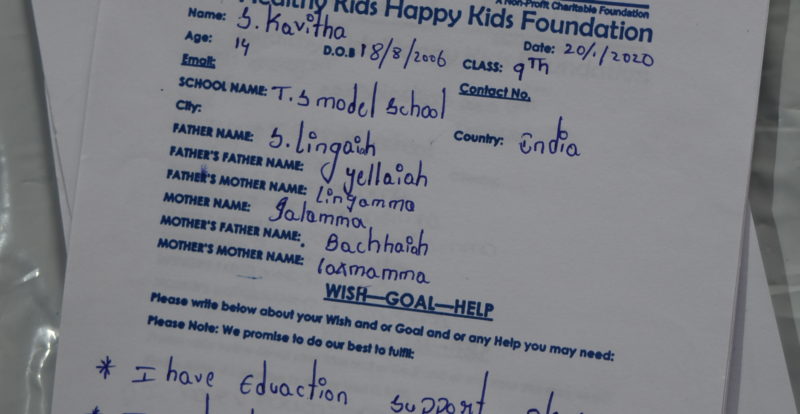 A Non-Profit Charitable Foundation
Kids Happy Kids Foundation
Name: S. Kavitha
Age: 14 D.O.B 18/8/2006 Date: 20/1/2020
Email: CLASS: 9Th
SCHOOL NAME: T.S model School Contact No.
City: Country: India
FATHER NAME: S. Lingaiah
FATHER'S FATHER NAME: yellaiah
FATHER'S MOTHER NAME: Lingamma
MOTHER NAME: Jalamma
MOTHER'S FATHER NAME: Bachhaiah
MOTHER'S MOTHER NAME: laxmamma
WISH—GOAL—HELP
Please write below about your Wish and or Goal and or any Help you may need:
Please Note: We promise to do our best to fulfil:
* I have Eduaction support